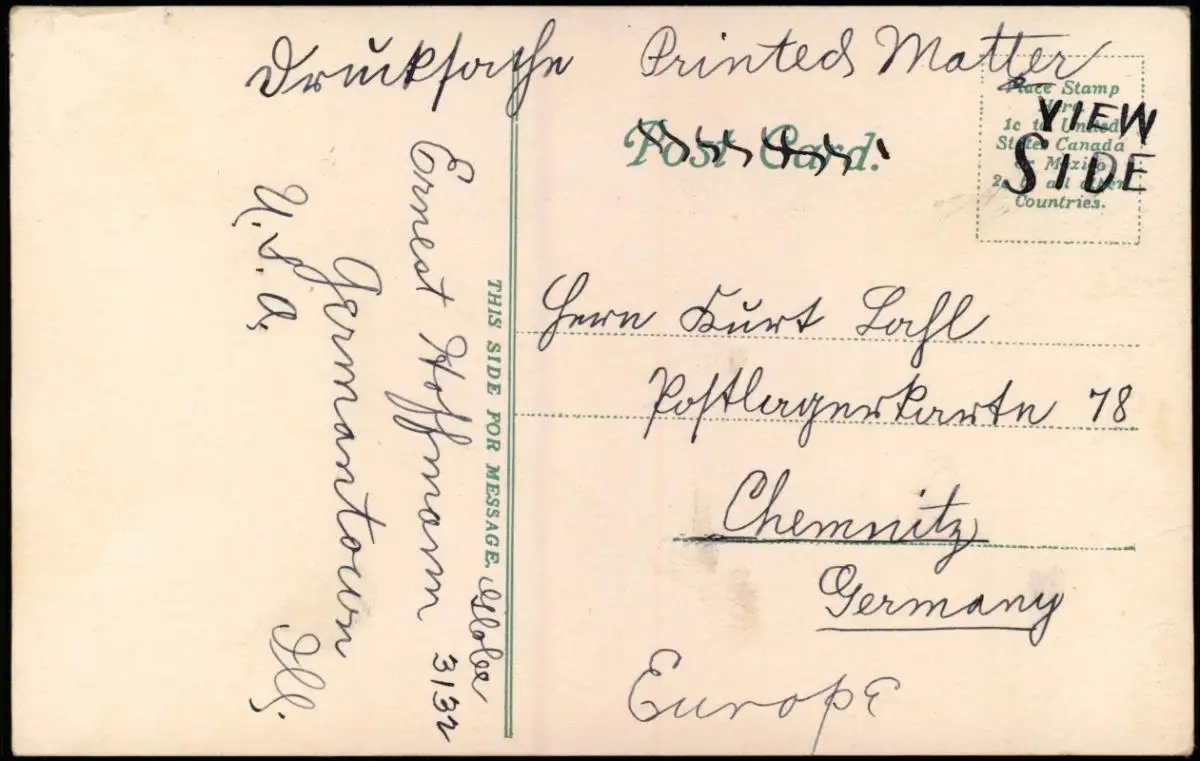 Drucksache Printed Matter
Post Card.
Place Stamp
Here
1c to United
States Canada
or Mexico
2c to all other
Countries.
VIEW
SIDE
Herrn Kurt Lahl
Postlagerkarte 78
Chemnitz
Germany
Europe
THIS SIDE FOR MESSAGE.
Globe
Ernest Hoffmann 3132
Germantown Ill.
U.S.A.